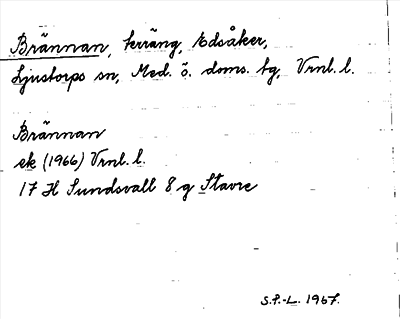 Brännan, terräng, Edsåker,
Ljustorps sn, Med. ö. doms. tg, Vrnl. l.
Brännan
ek (1966) Vrnl. l.
17 H Sundsvall 8 g Stavre
S.F.-L. 1967.